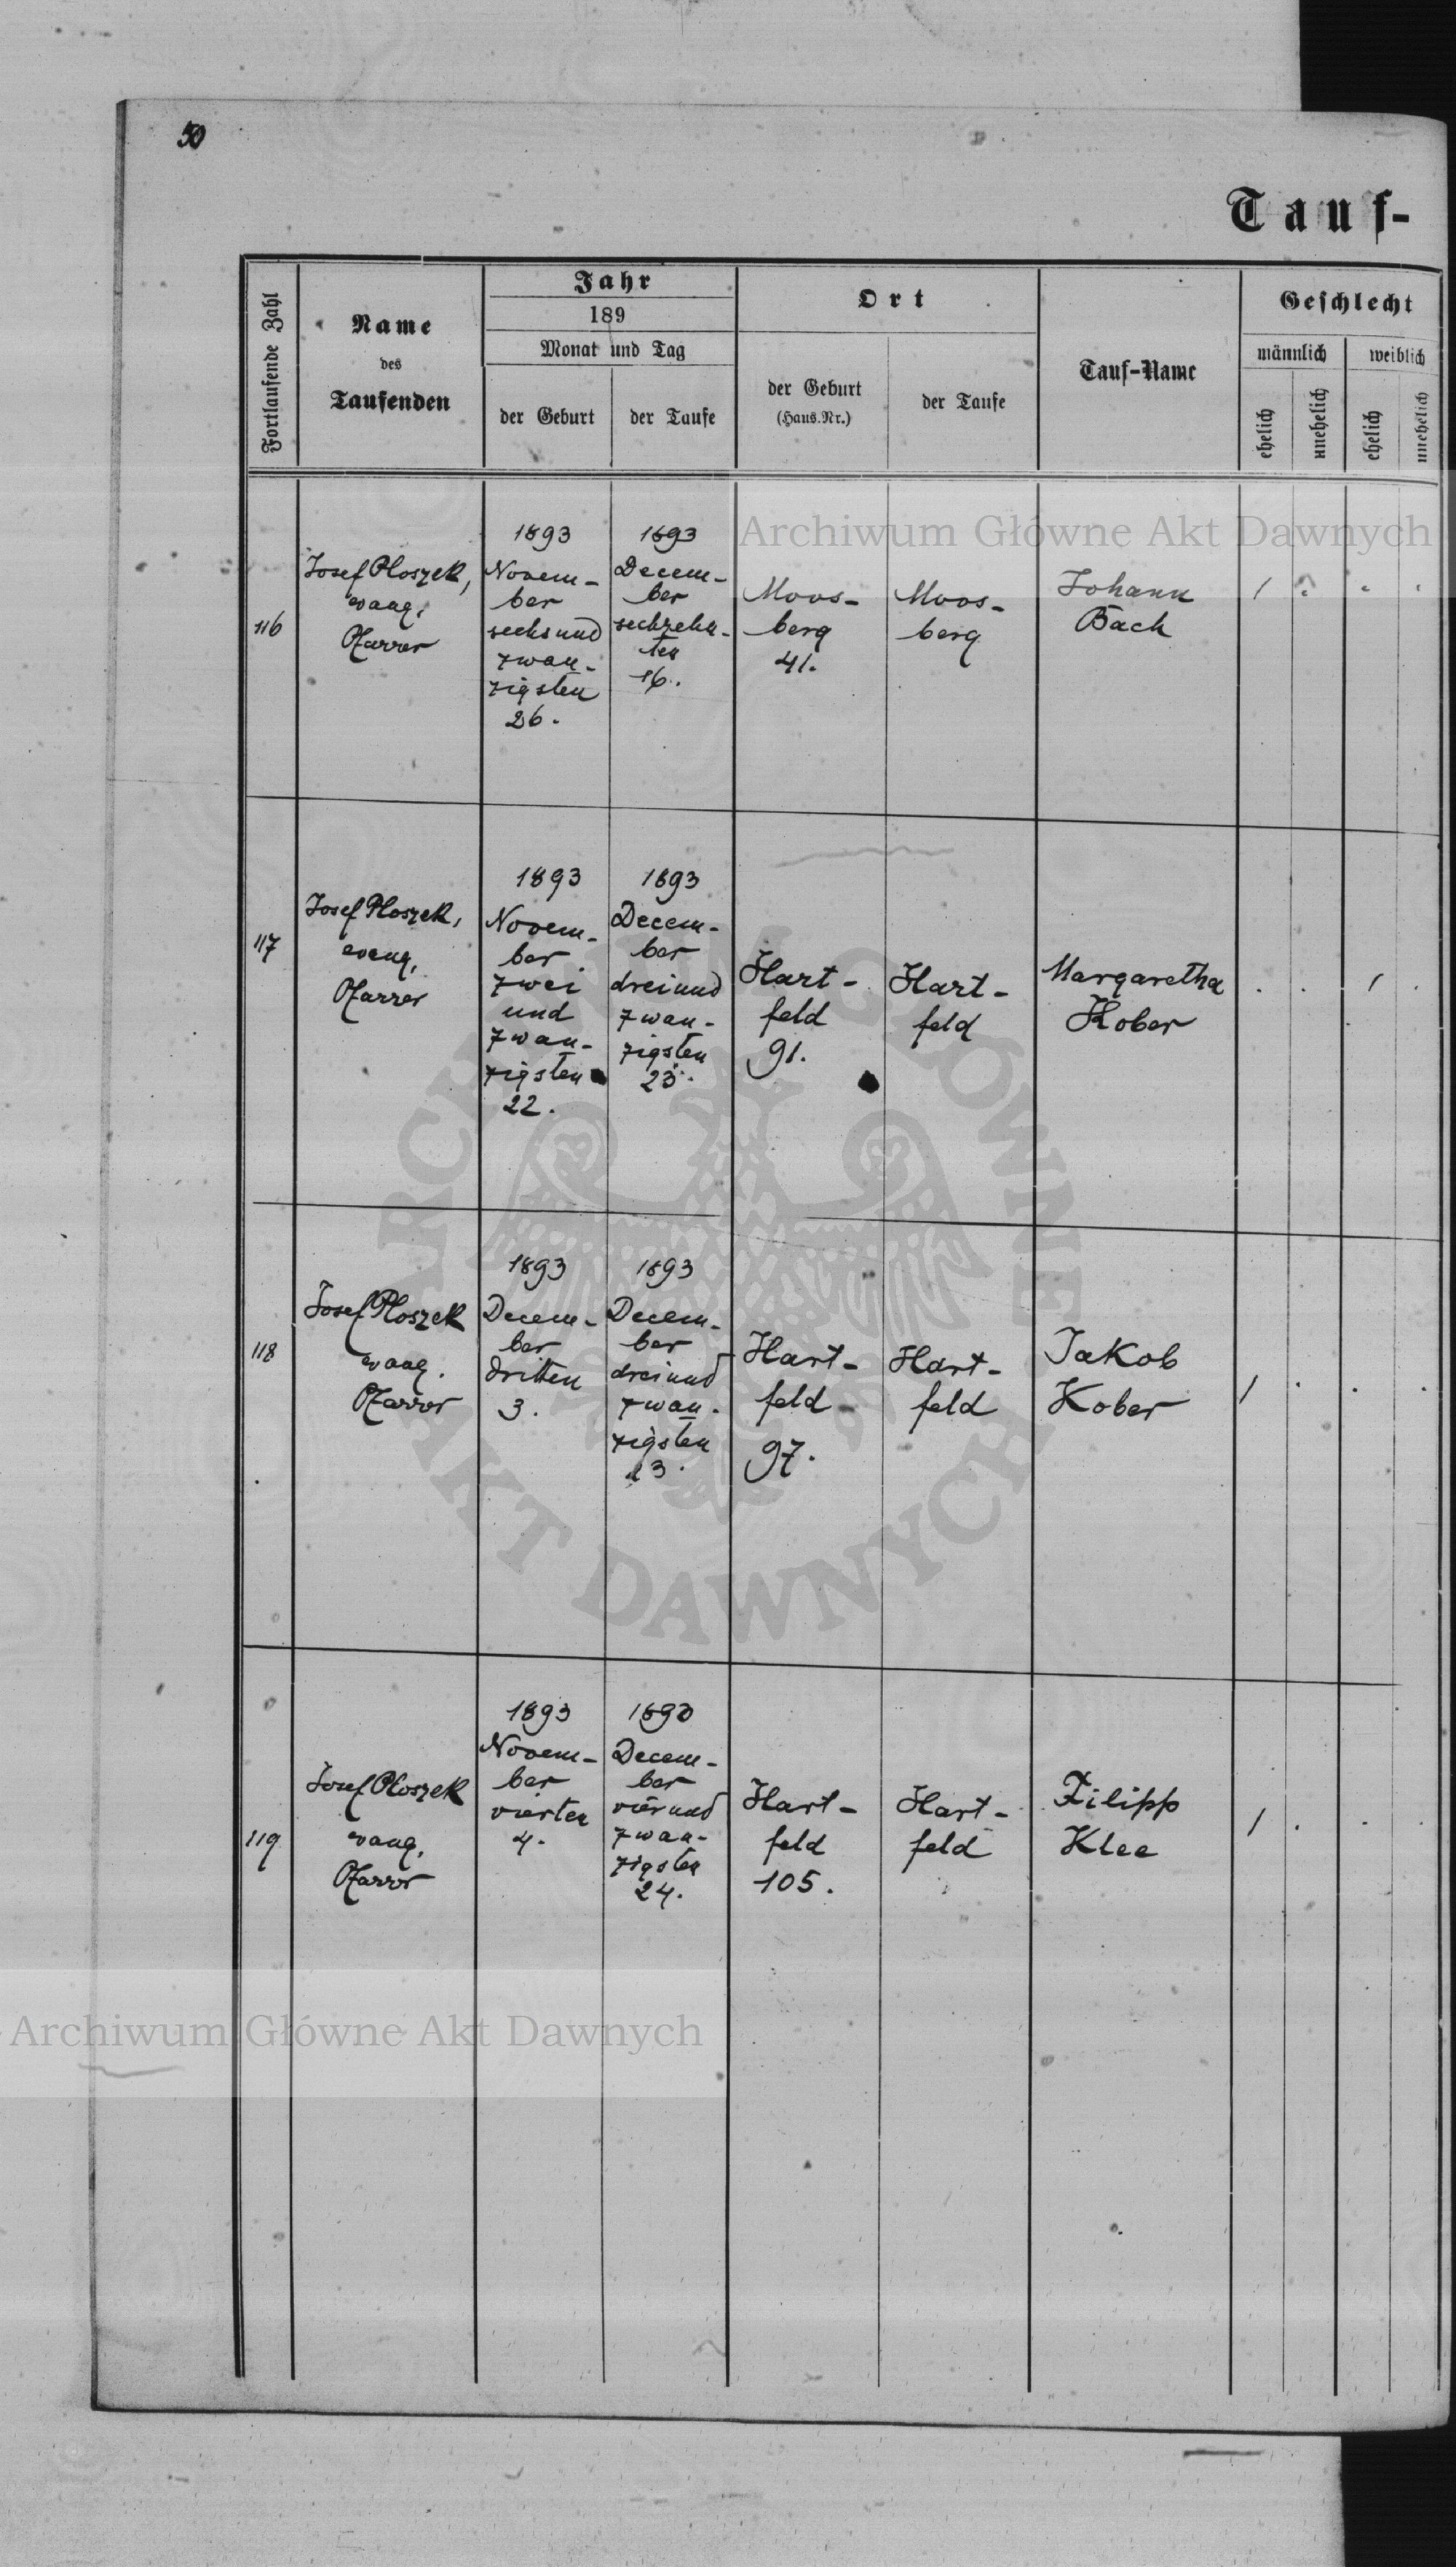 50
Tauf-
Fortlaufende Zahl
Name
des
Taufenden
Jahr
189
Monat und Tag
der Geburt
der Taufe
Ort
der Geburt
(Haus.Nr.)
der Taufe
Tauf-Name
Geschlecht
männlich
weiblich
ehelich
unehelich
ehelich
unehelich
Archiwum Główne Akt Dawnych
116
Josef Ploszek,
evang.
Pfarrer
1893
Novem-
ber
sechsund
zwan-
zigsten
26.
1893
Decem-
ber
sechzehn-
ten
16.
Moos-
berg
41.
Moos-
berg
Johann
Bach
1 . . .
117
Josef Ploszek,
evang.
Pfarrer
1893
Novem-
ber
zwei
und
zwan-
zigsten
22.
1893
Decem-
ber
dreiund
zwan-
zigsten
23.
Hart-
feld
91.
Hart-
feld
Margaretha
Kober
. . 1 .
118
Josef Ploszek
evang.
Pfarrer
1893
Decem-
ber
dritten
3.
1893
Decem-
ber
dreiund
zwan-
zigsten
23.
Hart-
feld
97.
Hart-
feld
Jakob
Kober
1 . . .
119
Josef Ploszek
evang.
Pfarrer
1893
Novem-
ber
vierten
4.
1893
Decem-
ber
vierund
zwan-
zigsten
24.
Hart-
feld
105.
Hart-
feld
Filipp
Klee
1 . . .
ARCHIWUM GŁÓWNE
AKT DAWNYCH
Archiwum Główne Akt Dawnych